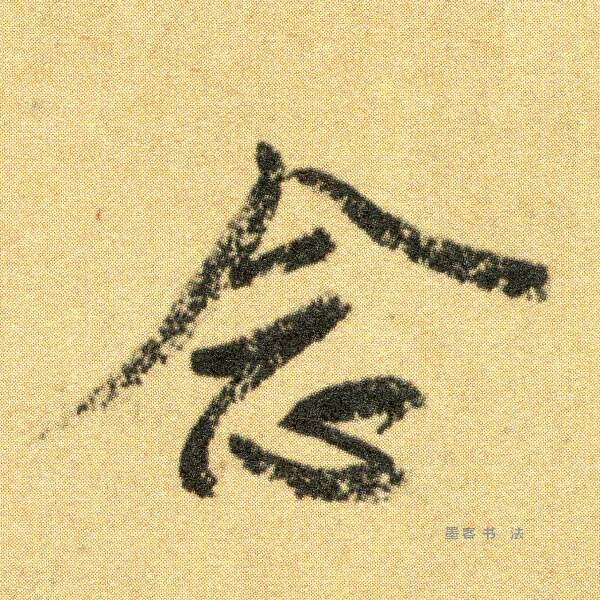 念
墨客书法